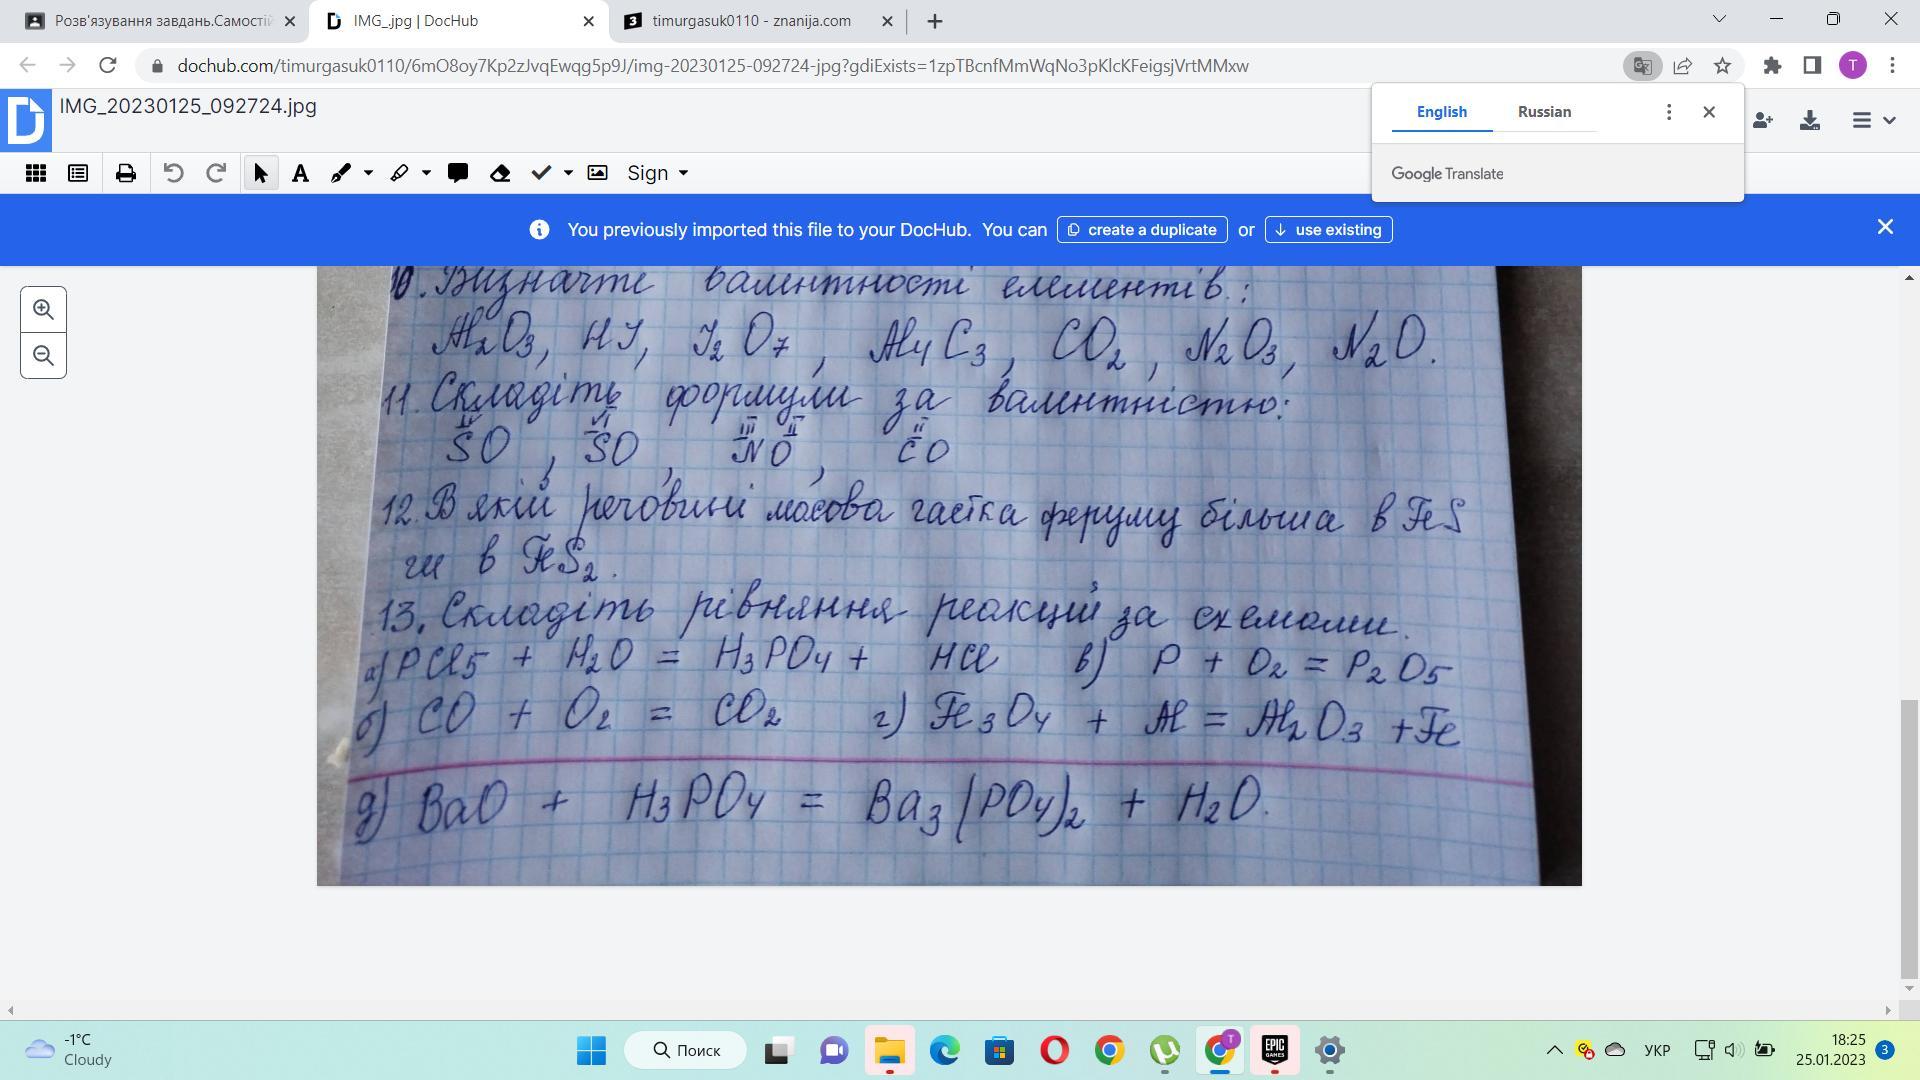 Розв'язування завдань.Самостій
IMG_.jpg | DocHub
timurgasuk0110 - znanija.com
dochub.com/timurgasuk0110/6mO8oy7Kp2zJvqEwqg5p9J/img-20230125-092724-jpg?gdiExists=1zpTBcnfMmWqNo3pKlcKFeigsjVrtMMxw
T
IMG_20230125_092724.jpg
English Russian
Google Translate
Sign
You previously imported this file to your DocHub. You can create a duplicate or use existing
10. Визначте валентності елементів:
Al₂O₃, HJ, J₂O₇, Al₄C₃, CO₂, N₂O₃, N₂O.
11. Складіть формули за валентністю:
IV VI III II II
SO, SO, NO, CO
12. В якій речовині масова частка феруму більша в FeS
чи в FeS₂.
13. Складіть рівняння реакцій за схемами.
а) PCl₅ + H₂O = H₃PO₄ + HCl в) P + O₂ = P₂O₅
б) CO + O₂ = CO₂ г) Fe₃O₄ + Al = Al₂O₃ + Fe
д) BaO + H₃PO₄ = Ba₃(PO₄)₂ + H₂O.
-1°C
Cloudy
Поиск
T
EPIC GAMES
УКР
18:25
25.01.2023
3